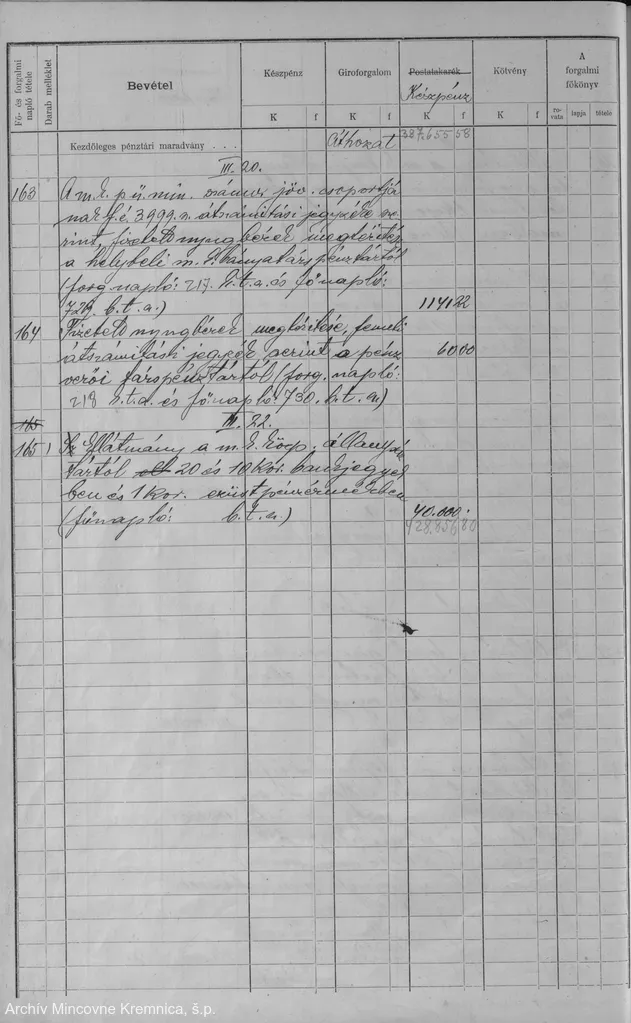 Fő- és forgalmi napló tétele
Darab melléklet
Bevétel
Készpénz
Giroforgalom
Postatakarék
Készpénz
Kötvény
A forgalmi főkönyv
K f K f K f K f rovata lapja tétele
Kezdőleges pénztári maradvány . . . Áthozat 387.655 58
III. 20.
163 A m. k. p. ü. min. számv. jöv. csoportjá
nak f. é. 3999. sz. átszámítási jegyzéke sze
rint, fizetett nyugbérek megtérítése
a helybeli m. k. bányatárspénztártól
(forg. napló: 217. b. t. a. és főnapló:
729. b. t. a.) 1141 22
164 Fizetett nyugbérek megtérítése, fenneti
átszámítási jegyzék szerint a pénz
verői társpénztártól (forg. napló: 60 00
218 b. t. a. és főnapló: 730. b. t. a.)
165 III. 22.
165 1 Ellátmány a m. k. közp. állampénz
tártól 20 és 10 kor. bankjegyek
ben és 1 kor. ezüst pénzérmékben
(főnapló: b. t. a.) 40.000 .
428.856 80
Archív Mincovne Kremnica, š.p.